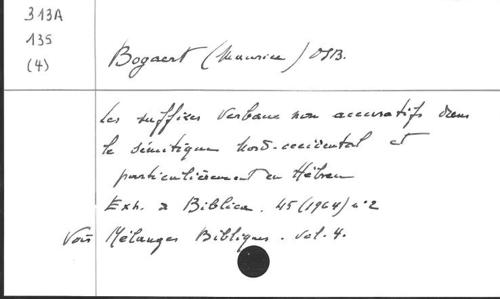 313A
135
(4)
Bogaert (Maurice) OSB.
Les suffixes verbaux non accusatifs dans
le sémitique nord-occidental et
particulièrement en Hébreu
Extr. de Biblica. 45 (1964) n°2
Voir Mélanges Bibliques. vol. 4.